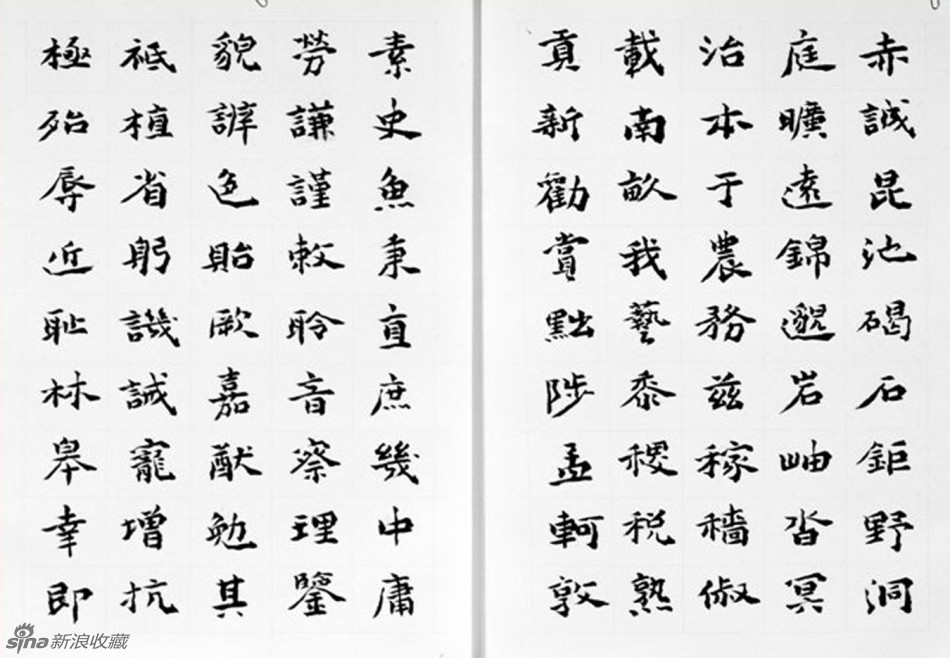 赤誠昆池碣石鉅野洞
庭曠遠錦邈岩岫沓冥
治本于農務兹稼穡俶
載南畝我藝黍稷税熟
貢新勸賞黜陟孟軻敦
素史魚秉直庶幾中庸
勞謙謹敕聆音察理鑒
貌辨色貽厥嘉猷勉其
祗植省躬譏誡寵增抗
極殆辱近耻林皋幸即
sina新浪收藏